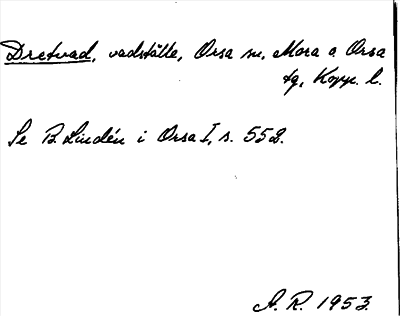 Dretvad, vadställe, Orsa sn, Mora o Orsa
tg, Kopp. l.
Se B. Lindén i Orsa I, s. 552.
A. R. 1953.